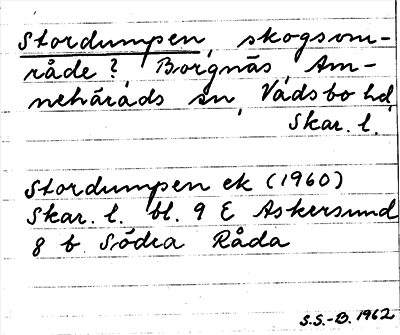 Stordumpen, skogsom-
råde?, Borgnäs, Am-
nehärads sn, Vadsbo hd,
Skar. l.
Stordumpen ek (1960)
Skar. l. bl. 9 E Askersund
8 b Södra Råda
S.S.-B. 1962